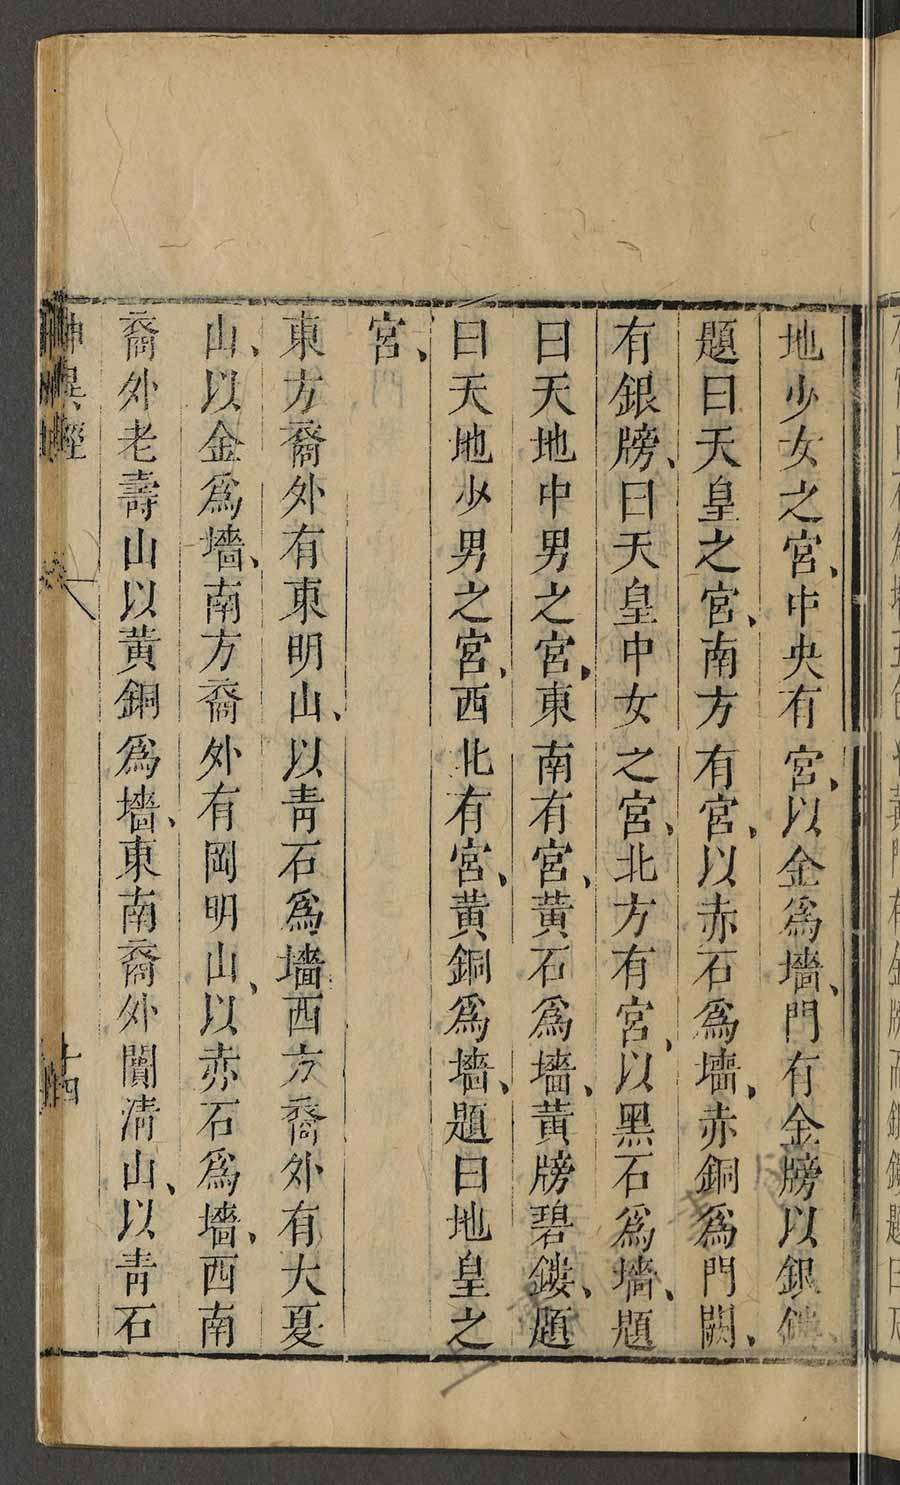 地少女之宮、中央有宮、以金爲墻、門有金牓以銀鏤、
題曰天皇之宮、南方有宮、以赤石爲墻、赤銅爲門闕、
有銀牓、曰天皇中女之宮、北方有宮、以黑石爲墻、題
曰天地中男之宮、東南有宮、黃石爲墻、黃牓碧鏤、題
曰天地少男之宮、西北有宮、黃銅爲墻、題曰地皇之
宮、
東方裔外有東明山、以靑石爲墻西方裔外有大夏
山、以金爲墻、南方裔外有岡明山、以赤石爲墻、西南
裔外老壽山以黃銅爲墻、東南裔外闐淸山、以靑石
神異經
十四